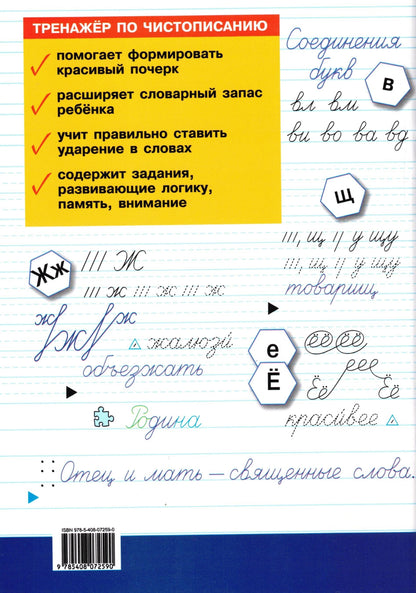 ТРЕНАЖЁР ПО ЧИСТОПИСАНИЮ
помогает формировать
красивый почерк
расширяет словарный запас
ребёнка
учит правильно ставить
ударение в словах
содержит задания,
развивающие логику,
память, внимание
Соединения
букв
в
вл вм
ви во ва вд
щ
щ у щу
щ у щу
товарищ
Жж
Ж
ж ж ж
ж Ж ж
жалюзи́
объезжать
е
Ё
ёё ёё
еее
Ёё Ёё
Родина
краси́вее
Отец и мать – священные слова.
ISBN 978-5-408-07259-0
9 785408 072590